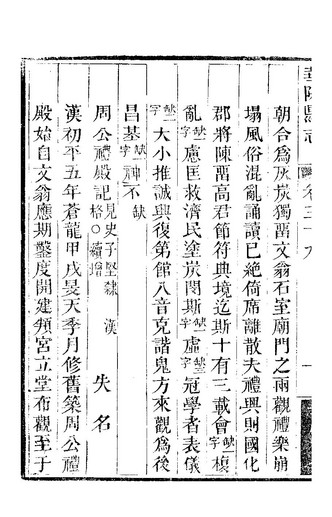 朝合為灰炭獨畱文翁石室廟門之兩觀禮樂崩
塌風俗混亂誦讀已絕倚席離散夫禮興則國化
郡將陳畱高君節符典境迄斯十有三載會缺一字㮴
亂缺一字慮匡救濟民塗炭閔斯缺一字虛缺二字冠學者表儀
缺一字大小推誠與復第館八音克諧鬼方來觀為後
昌基缺一字神不缺
周公禮殿記見史子堅隸格○續增 漢 失名
漢初平五年蒼龍甲戌旻天季月修舊築周公禮
殿始自文翁應期鑿度開建頖宮立堂布觀至于
華陽縣志
卷三十九
一